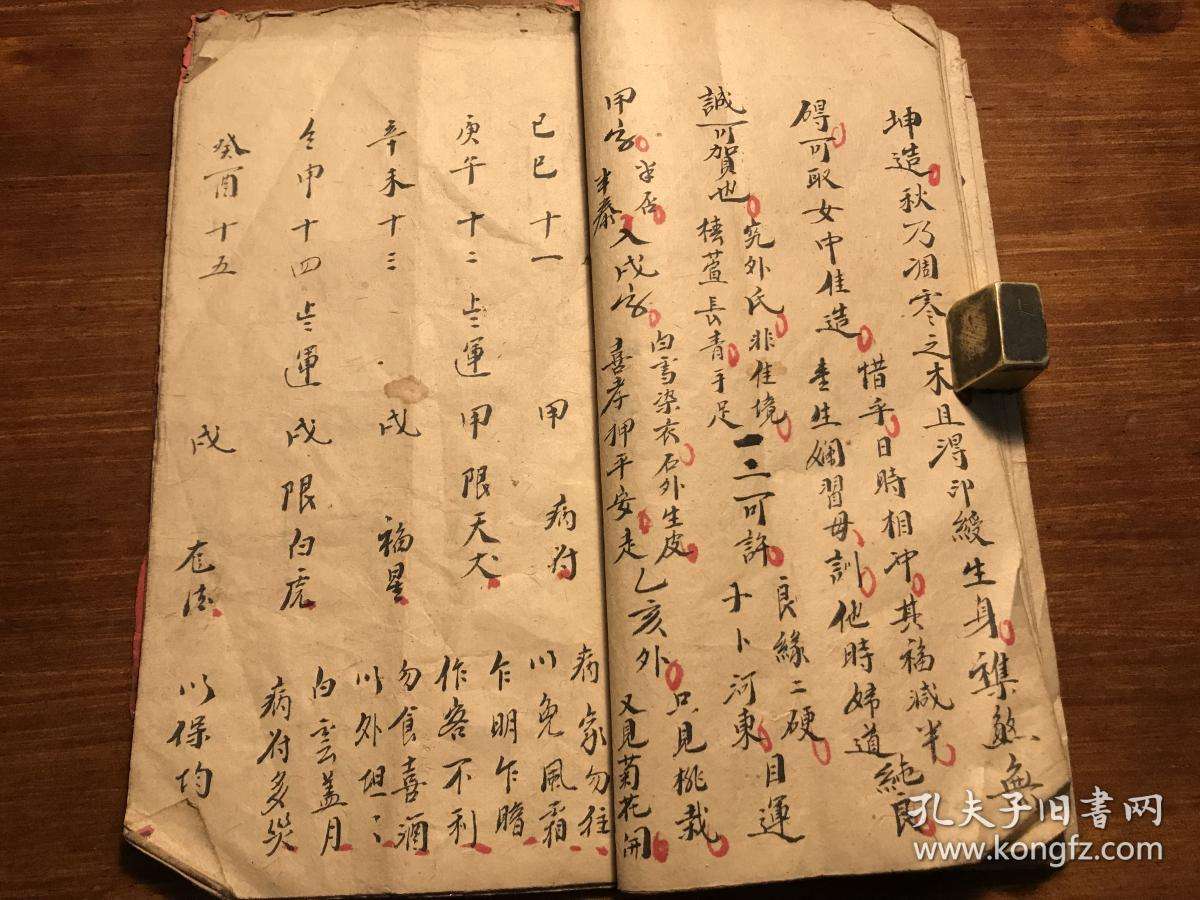 坤造秋乃凋零之木且淂印綬生身襍煞無
碍可取女中佳造惜乎日時相冲其福減半
生嫻習母訓他時婦道純良
誠可賀也究外氏非佳境良緣二硬目運
椿萱長青手足一二可許卜河東
甲字半否入戊字白雪染衣石外生皮
半泰喜孝押平安走乙亥外只見桃栽
又見菊花開
己巳十一 甲 病符 病家勿往
以免風霜
庚午十二 上運 甲限天犬 乍明乍暗
作客不利
辛未十三 戊 福星 勿食喜酒
以外坦二
壬申十四 上運 戊限白虎 白雲盖月
病符多災
癸酉十五 戊 以保均
孔夫子旧书网
www.kongfz.com